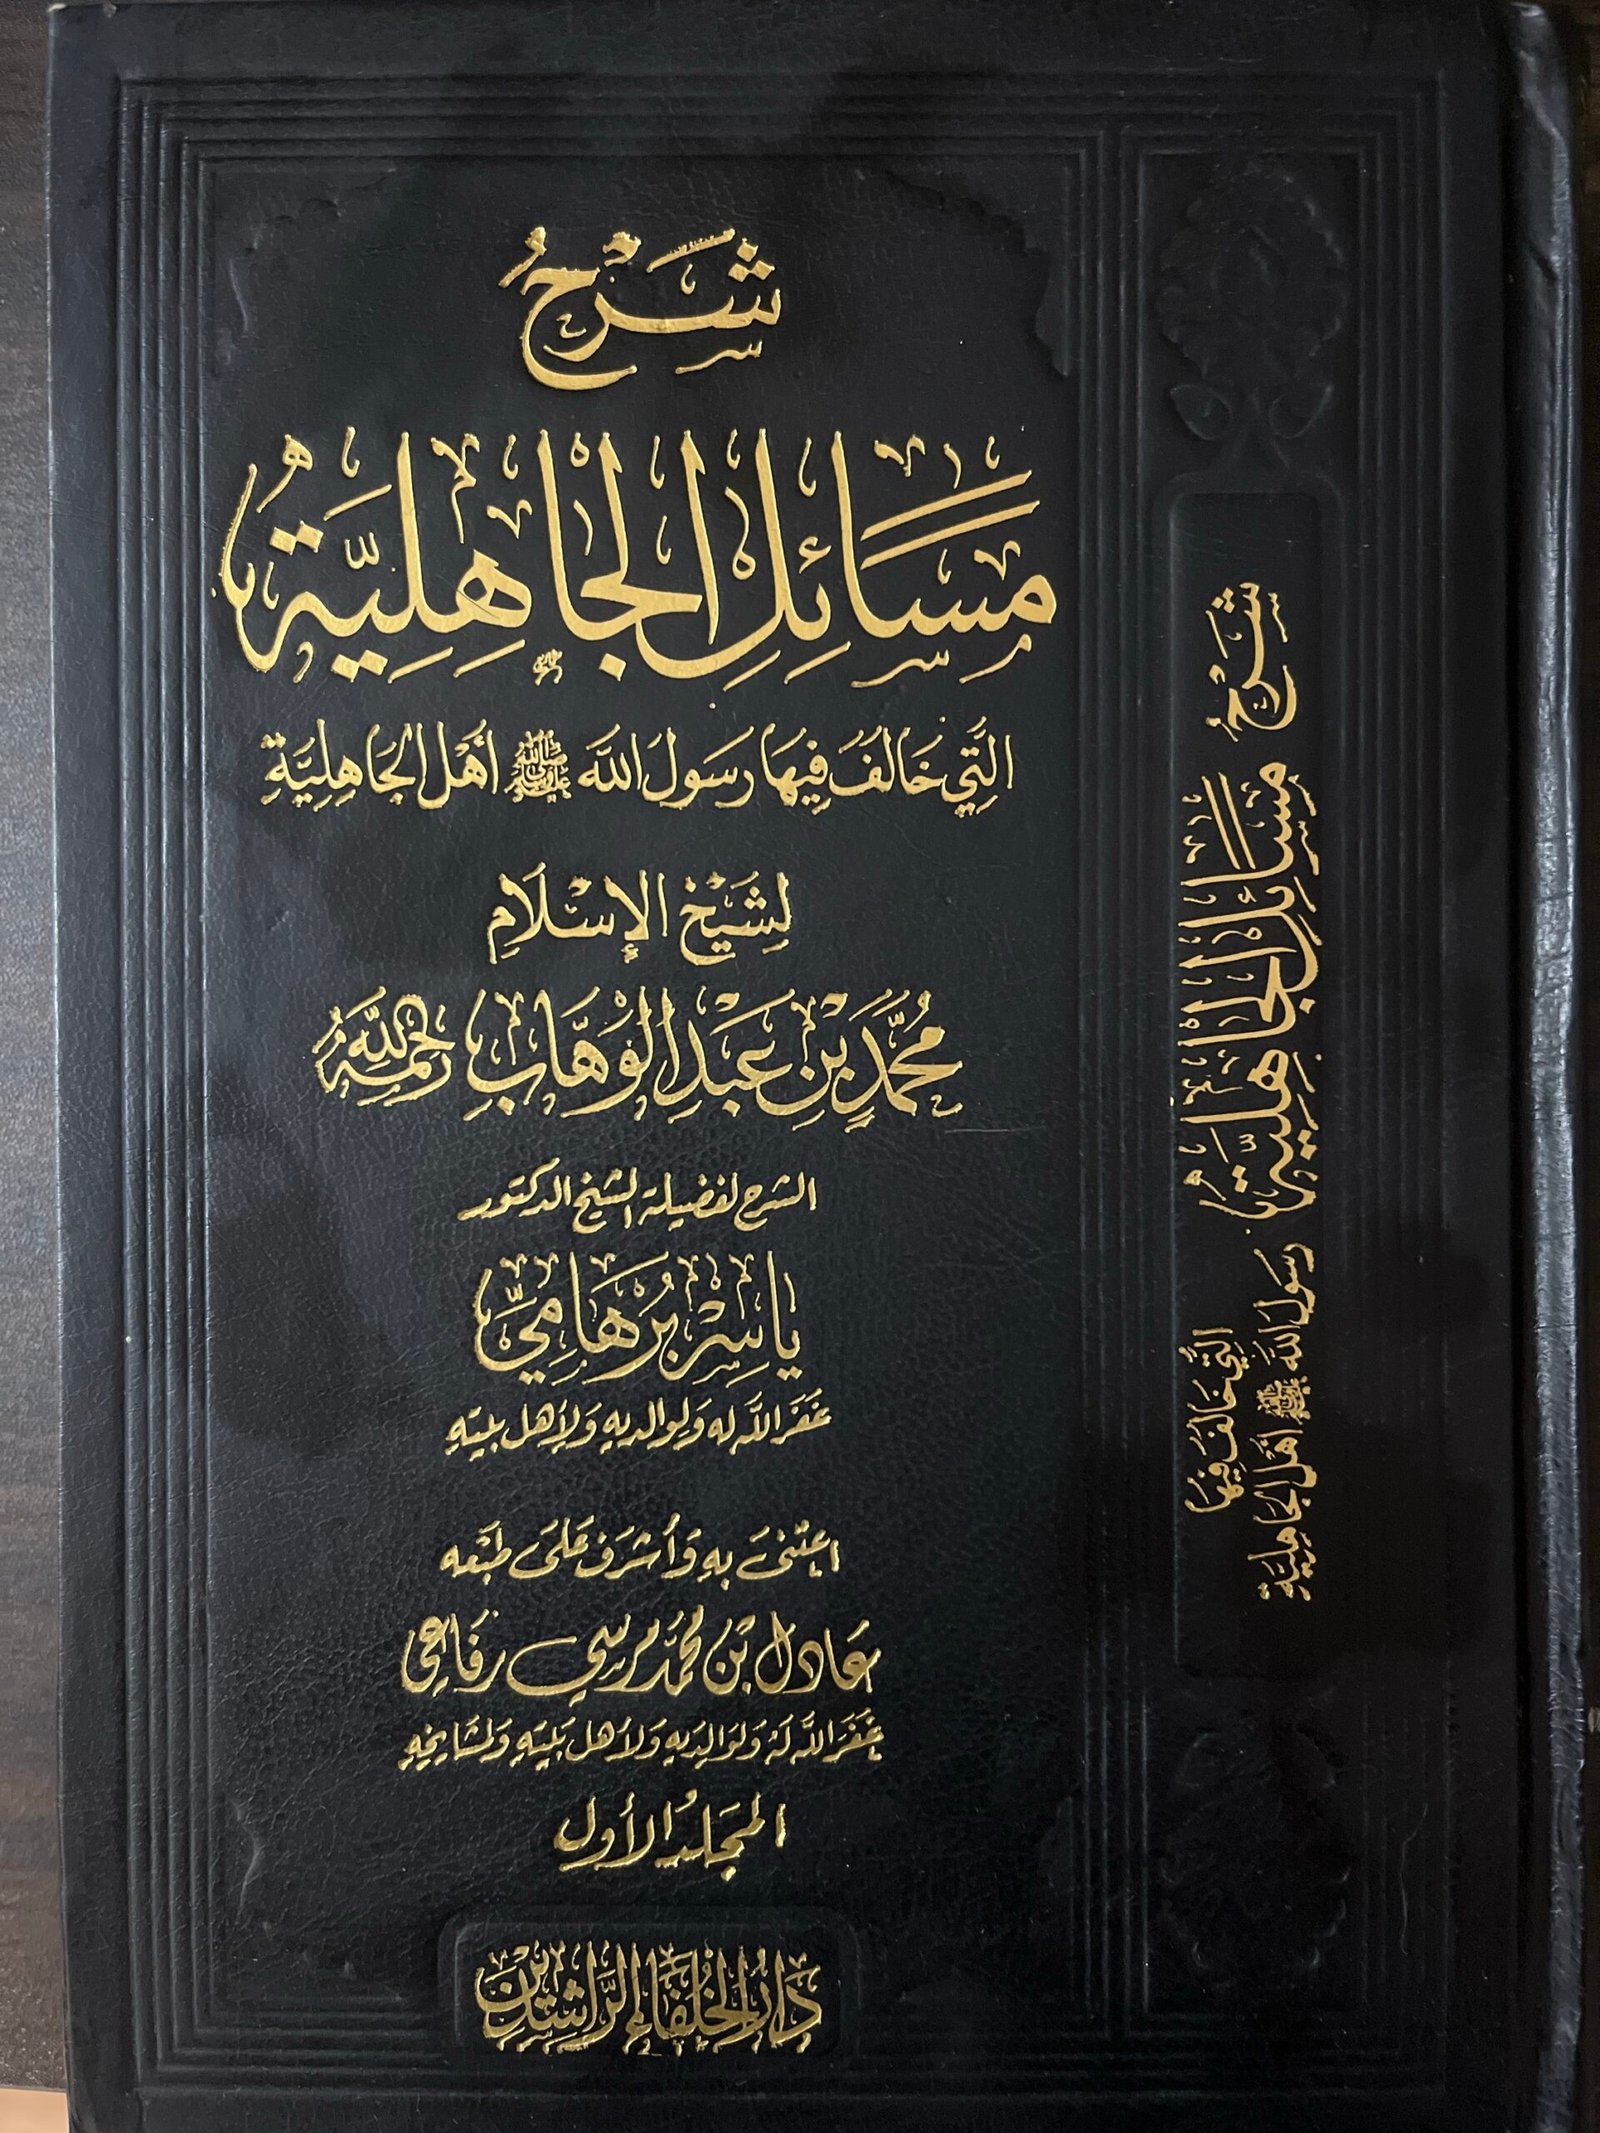 شَرْحُ
مَسَائِلِ الْجَاهِلِيَّةِ
الَّتِي خَالَفَ فِيهَا رَسُولَ اللَّهِ ﷺ أَهْلَ الْجَاهِلِيَّةِ
لِشَيْخِ الْإِسْلَامِ
مُحَمَّدِ بْنِ عَبْدِ الْوَهَّابِ رَحِمَهُ اللَّهُ
الشرح لفضيلة الشيخ الدكتور
يَاسِرْ بُرْهَامِيّ
غَفَرَ اللَّه له وَلوالديه وَلأهل بيته
اعتنىَ به وَأشرَف عَلىَ طبْعه
عَادل بْن محمَّد مرسي رفَاعِي
غَفَرَ اللَّه لَهُ وَلوَالِدَيه وَلأهل بَيته وَلمشَايخه
المجَلدُ الأول
دَارُ الْخُلَفَاءِ الرَّاشِدِين
شَرْحُ مَسَائِلِ الْجَاهِلِيَّةِ
الَّتِي خَالَفَ فِيهَا
رَسُولَ اللَّهِ ﷺ أَهْلَ الْجَاهِلِيَّةِ